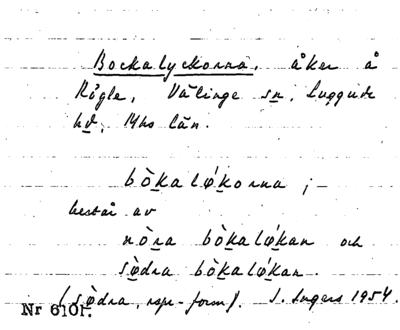 Bockalyckorna, åker å
Rögle, Välinge sn, Luggude
hd, Mhs län.
bòkaløkorna ; –
består av
nòra bòkaløkan och
sødra bòkaløkan.
(södra, rspr-form). I. Ingers 1954.
Nr 6101.